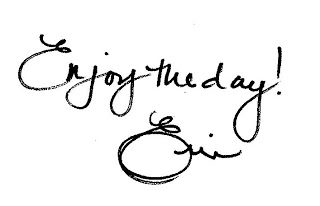 Enjoy the day!
Erin